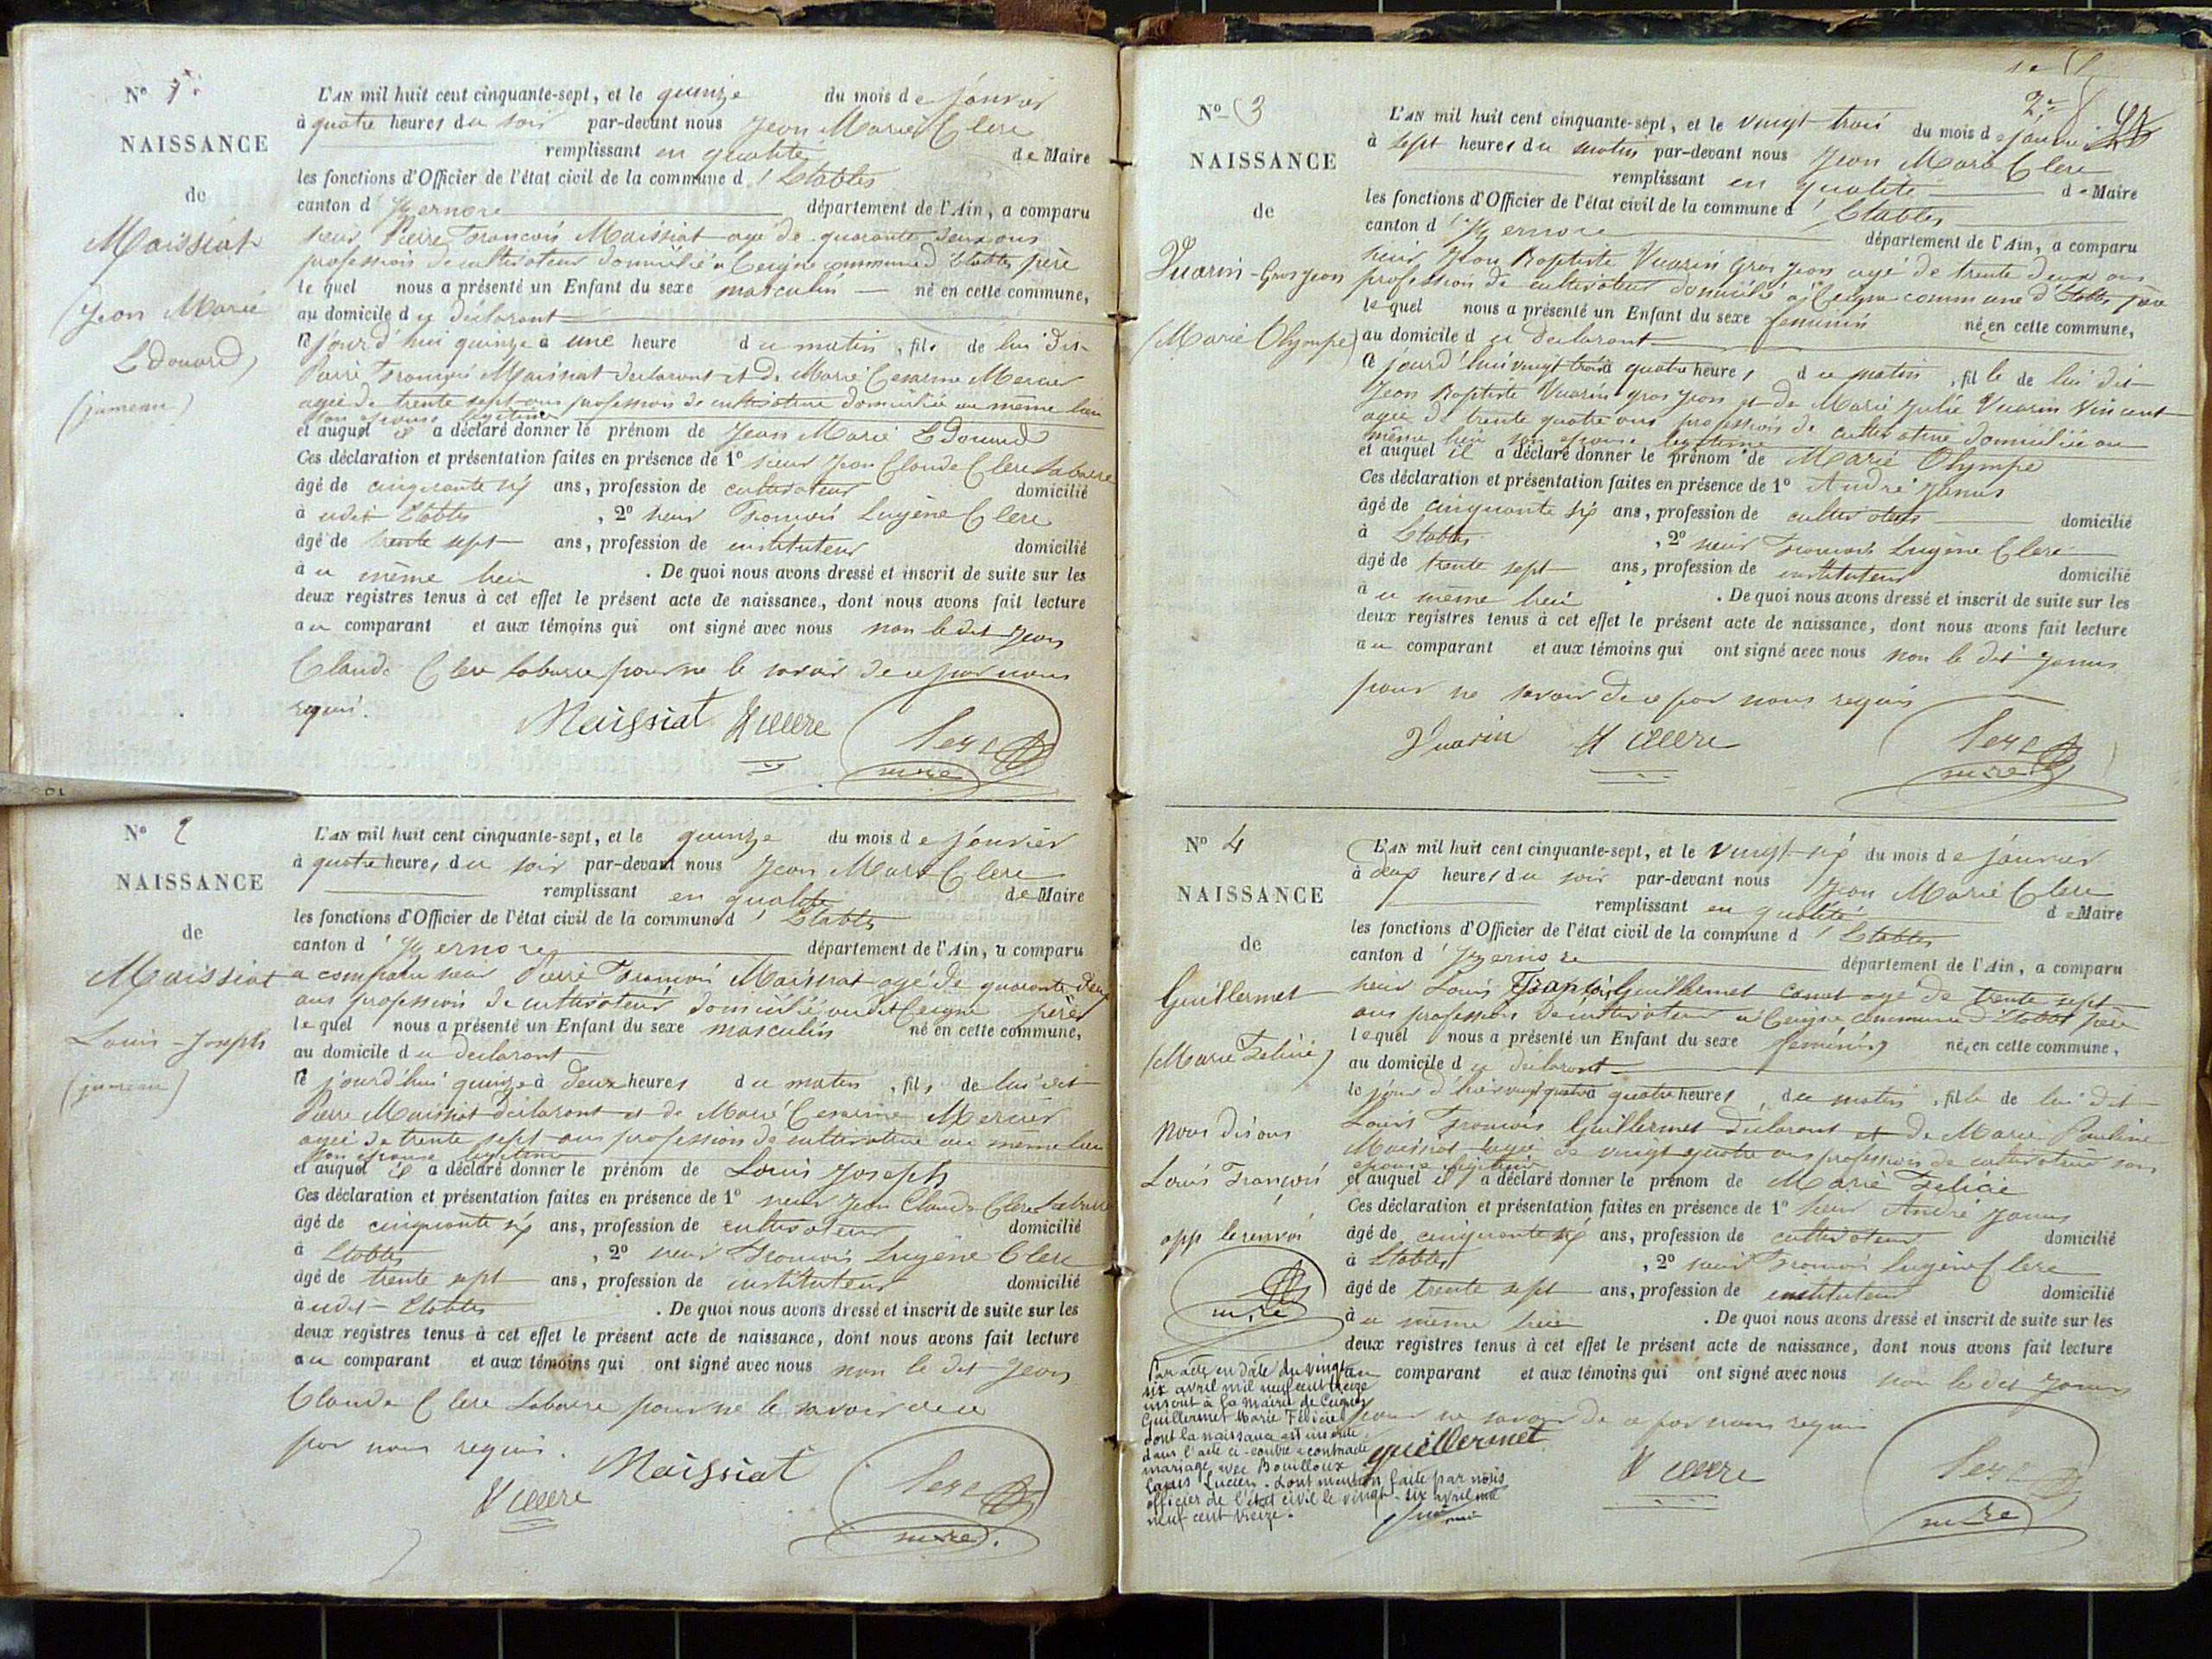 No 1er
NAISSANCE
de
Maissiat
(Jean Marie
Edouard)
(jumeau)
L'AN mil huit cent cinquante-sept, et le quinze du mois de janvier
à quatre heures du soir par-devant nous Jean Marie Clerc
remplissant en qualité de Maire
les fonctions d'Officier de l'état civil de la commune d'Etables
canton d'Izernore département de l'Ain, a comparu
sieur Pierre François Maissiat agé de quarante deux ans
profession de cultivateur domicilié à Ceigne commune d'Etables père
lequel nous a présenté un Enfant du sexe masculin né en cette commune,
au domicile du déclarant
ce jourd'hui quinze à une heure du matin, fils de lui dit
Pierre François Maissiat declarant et de Marie Cesarine Mercier
agée de trente sept ans profession de cultivatrice domiciliée au même lieu
son epouse legitime
et auquel il a déclaré donner le prénom de Jean Marie Edouard
Ces déclaration et présentation faites en présence de 1º sieur Jean Claude Clerc Labarre
âgé de cinquante six ans, profession de cultivateur domicilié
à udit Etables, 2º sieur François Eugène Clerc
âgé de trente sept ans, profession de instituteur domicilié
au même lieu. De quoi nous avons dressé et inscrit de suite sur les
deux registres tenus à cet effet le présent acte de naissance, dont nous avons fait lecture
au comparant et aux témoins qui ont signé avec nous non le dit Jean
Claude Clerc Labarre pour ne le savoir de ce par nous
requis.
Maissiat Clerc
Clerc
maire
No 2
NAISSANCE
de
Maissiat
Louis-Joseph
(jumeau)
L'AN mil huit cent cinquante-sept, et le quinze du mois de janvier
à quatre heures du soir par-devant nous Jean Marie Clerc
remplissant en qualité de Maire
les fonctions d'Officier de l'état civil de la commune d'Etables
canton d'Izernore département de l'Ain, a comparu
a comparu sieur Pierre François Maissiat agé de quarante deux
ans profession de cultivateur domicilié au dit Ceigne père
lequel nous a présenté un Enfant du sexe masculin né en cette commune,
au domicile du declarant
ce jourd'hui quinze à deux heures du matin, fils de lui dit
Pierre Maissiat déclarant et de Marie Cesarine Mercier
agée de trente sept ans profession de cultivatrice au même lieu
son epouse legitime
et auquel il a déclaré donner le prénom de Louis Joseph
Ces déclaration et présentation faites en présence de 1º sieur Jean Claude Clerc Labarre
âgé de cinquante six ans, profession de cultivateur domicilié
à Etables, 2º sieur François Eugène Clerc
âgé de trente sept ans, profession de instituteur domicilié
à udit Etables. De quoi nous avons dressé et inscrit de suite sur les
deux registres tenus à cet effet le présent acte de naissance, dont nous avons fait lecture
au comparant et aux témoins qui ont signé avec nous non le dit Jean
Claude Clerc Labarre pour ne le savoir de ce
par nous requis.
Maissiat
Clerc
Clerc
maire
No 3
NAISSANCE
de
Vuarin-Gros jean
(Marie Olympe)
L'AN mil huit cent cinquante-sept, et le vingt trois du mois de janvier
à sept heures du matin par-devant nous Jean Marie Clerc
remplissant en qualité de Maire
les fonctions d'Officier de l'état civil de la commune d'Etables
canton d'Izernore département de l'Ain, a comparu
sieur Jean Baptiste Vuarin Gros jean agé de trente deux ans
profession de cultivateur domicilié à Ceigne commune d'Etables père
lequel nous a présenté un Enfant du sexe feminin née en cette commune,
au domicile du declarant
ce jourd'hui vingt trois à quatre heures du matin, fille de lui dit
Jean Baptiste Vuarin gros jean et de Marie Julie Vuarin Vincent
agée de trente quatre ans profession de cultivatrice domiciliée au
même lieu son epouse legitime
et auquel il a déclaré donner le prénom de Marie Olympe
Ces déclaration et présentation faites en présence de 1º André Janus
âgé de cinquante six ans, profession de cultivateur domicilié
à Etables, 2º sieur François Eugène Clerc
âgé de trente sept ans, profession de instituteur domicilié
au même lieu. De quoi nous avons dressé et inscrit de suite sur les
deux registres tenus à cet effet le présent acte de naissance, dont nous avons fait lecture
au comparant et aux témoins qui ont signé avec nous non le dit Janus
pour ne savoir de ce par nous requis
Vuarin Clerc
Clerc
maire
No 4
NAISSANCE
de
Guillermet
(Marie Felicie)
nous disons
Louis François
app le renvoi
maire
L'AN mil huit cent cinquante-sept, et le vingt-six du mois de janvier
à deux heures du soir par-devant nous Jean Marie Clerc
remplissant en qualité de Maire
les fonctions d'Officier de l'état civil de la commune d'Etables
canton d'Izernore département de l'Ain, a comparu
sieur Louis François Guillermet agé de trente sept
ans profession de cultivateur à Ceigne commune d'Etables père
lequel nous a présenté un Enfant du sexe féminin née en cette commune,
au domicile du declarant
le jour d'hier à quatre heures du matin, fille de lui dit
Louis François Guillermet déclarant et de Marie Pauline
Maissiat agée de vingt quatre ans profession de cultivatrice son
epouse legitime
et auquel il a déclaré donner le prénom de Marie Felicie
Ces déclaration et présentation faites en présence de 1º sieur André Janus
âgé de cinquante six ans, profession de cultivateur domicilié
à Etables, 2º sieur François Eugène Clerc
âgé de trente sept ans, profession de instituteur domicilié
au même lieu. De quoi nous avons dressé et inscrit de suite sur les
deux registres tenus à cet effet le présent acte de naissance, dont nous avons fait lecture
au comparant et aux témoins qui ont signé avec nous non le dit Janus
pour ne savoir de ce par nous requis
guillermet
Clerc
Clerc
maire
Par acte en date du vingt
six avril mil neuf cent treize
inscrit à la mairie de
Guillermet Marie Félicie
dont la naissance est inscrite
dans l'acte ci-contre a contracté
mariage avec Bouilloux
Louis Lucien. Dont mention faite par nous
officier de l'état civil le vingt-six avril mil
neuf cent treize.